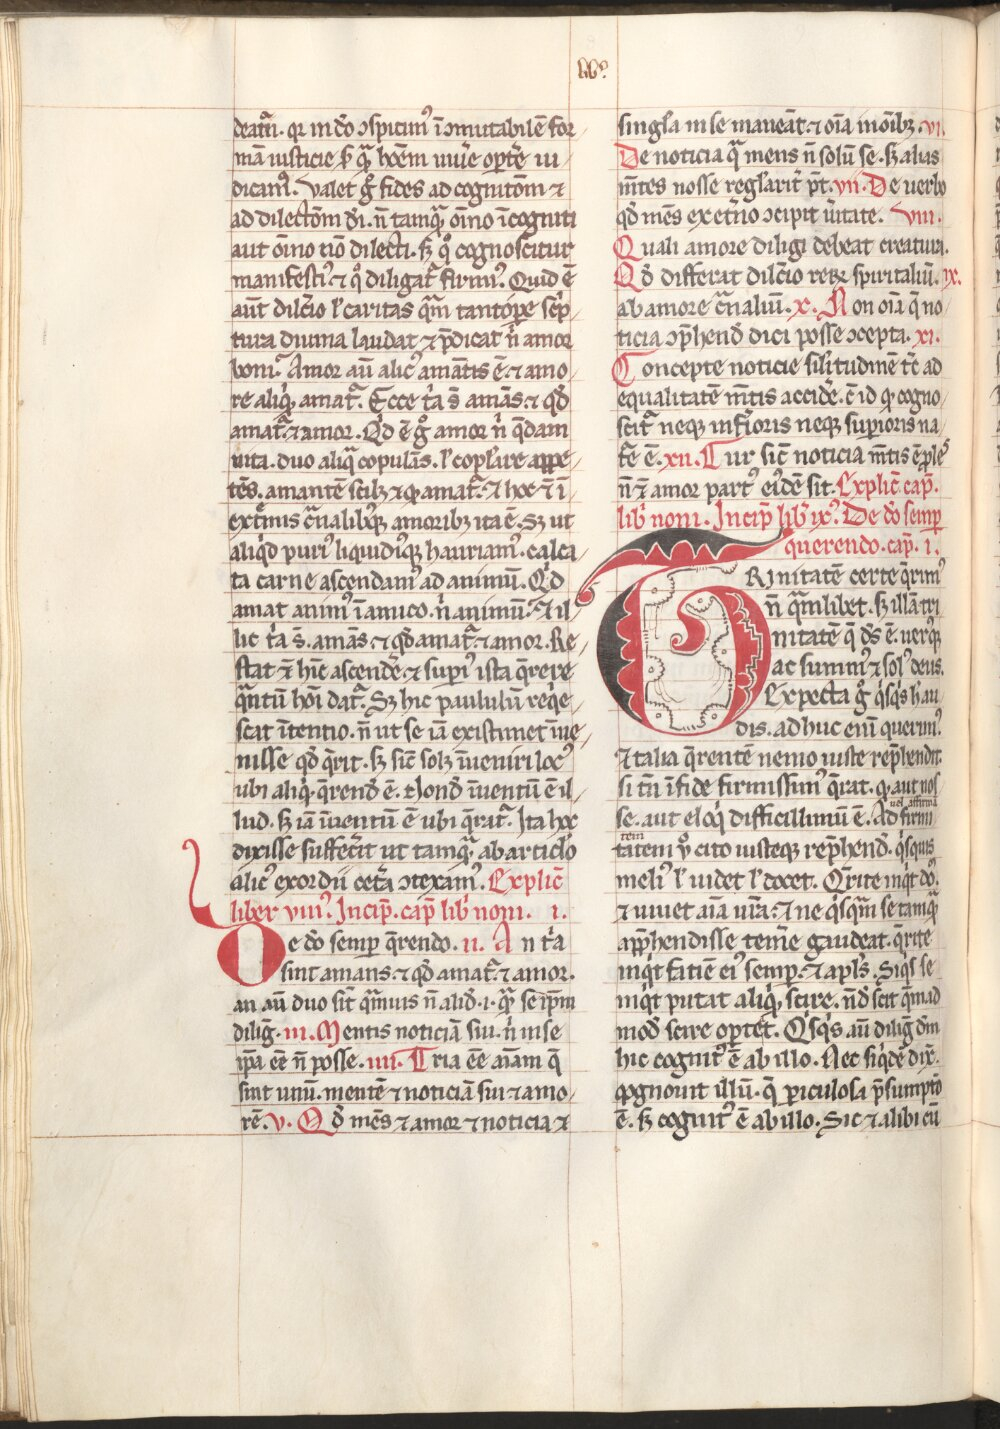 deatur̄. qr in dō ɔspicimꝰ īɔmutabilē for
mā iusticie ẜ q̄ hoīem uiu̾e oport̾e iu
dicamꝰ. Valet ḡ fides ad cognitōm ⁊
ad dilectōm dī. n̄ tamq̄ oīno īcogniti
aut oīno nō dilecti. ẜꝫ qͦ cognoscitur
manifestiꝰ ⁊ qͦ diligat̾ firmiꝰ. Quid ē
aut̄ dilc̄io ł caritas qͣm tantope̲ sc̾p
tura diuina laudat ⁊ p̄dicat ń amor
boni. Amor aū alicꝰ amātis ē. ⁊ amo
re aliqͥ amat̾. Ecce t̾a s̄ amās. ⁊ qͦd
amat̾. ⁊ amor. Qͥd ē ḡ amor ń qͣdam
uita. duo aliqͣ copulās. ł copłare appe
tēs. amantē scilꝫ ⁊ qͦ amat̾. ⁊ hoc ⁊ ī
ext̾mis c̾nalibꝰqꝫ amoribꝫ ita ē. Sꝫ ut
aliqͥd puriꝰ liquidiꝰqꝫ hauriamꝰ. calca
ta carne ascendamꝰ ad animū. Qͥd
amat animꝰ ī amico. ń animū. ⁊ il
lic t̾a s̄. amās. ⁊ qͦd amat̾. ⁊ amor. Re
stat ⁊ hīc ascend̾e. ⁊ supiꝰ ista q̄rere
qͣntū hoī dat̾. Sꝫ hic paululū reqͥe
scat ītentio. n̄ ut se iā existimet īue
nisse qͦd q̄rit. ẜꝫ sic̄ solꝫ īueniri locꝰ
ubi aliqͥd q̄rend̄ ē. Nond̄ īuentū ē il
lud. ẜꝫ iā īuentū ē ubi q̄rat̾. Ita hoc
dixisse suffec̾it ut tamqͣ ab articło
alicꝰ exordii cet̾a ɔtexamꝰ. Explic̄
liber viiiꝰ. Incip̄. cap̄ lib̾ noni. i.
De dō semp̲ q̄rendo. ii. An t̾a
sint amans. ⁊ qͦd amat̾. ⁊ amor.
an aū duo sīt qͣmuis n̄ aliꝰd. i. qͣ se ip̄m
dilig̾. iii. Mentis noticiā sui. ń in se
ip̄a eē n̄ posse. iiii. Tria eē aīam q̄
sint unū. mentē ⁊ noticiā sui ⁊ amo
rē. v. Qͦd mēs ⁊ amor ⁊ noticia ⁊
singła in se maneāt. ⁊ oīa in oībꝫ. vi.
De noticia qͣ mens n̄ solū se. ẜꝫ alias
m̄tes nosse regłarit̾ p̄t. vii. De uerbo
qͦd mēs ex et̾no ɔcipit u̾itate. viii.
Quali amore diligi debeat creatura.
Qͥd differat dilc̄io reꝝ spiritaliū. ix.
ab amore c̾naliū. x. Non oīa q̄ no
ticia ɔp̄hend̾ dici posse ɔcepta. xi.
Concepte noticie silitudinē t̄c ad
equalitatē m̄tis accide̾. c̄ id qͦ cogno
scit̾ neqꝫ inf̾ioris neqꝫ superioris na
t̾e ē. xii. Cur sic̄ noticia m̄tis ē ples
n̄ ⁊ amor partꝰ eiꝰdē sit. Explic̄ cap̄.
lib̾ noni. Incip̄ lib̾ ixꝰ. De dō semp̲
querendo. cap̄. i.
TRinitatē certe q̄rimꝰ
n̄ qͣmlibet. ẜꝫ illā tri
nitatē q̄ ds̄ ē. uerꝰqꝫ
ac summꝰ ⁊ solꝰ deus.
Expecta ḡ qͥsqͥs hau
dis. adhuc eni̅ querimꝰ.
Et talia q̄rentē nemo iuste rep̄hendit.
si tn̄ ī fide firmissimꝰ q̄rat. qͦ aut nos
se. aut eloqͥ difficillimū ē. Ad firmi
uel affirma
tem
tatem u̾o cito iusteqꝫ rep̄hend̾. qͥsquis
meliꝰ ł uidet ł docet. Qͥrite inqͥt dō.
⁊ uiuet aīa ur̄a. ⁊ ne qͥsqͣm se tamqͣ
app̄hendisse tem̾e gaudeat. qͥrite
inqͥt faciē eiꝰ semp̲. ⁊ apłs. Siqͥs se
inqͥt putat aliqͥd scire. nōd̾ scit quēad
mod̄ scire oportet. Qͥsqͥs aū dilig̾ dm̄
hic cognitꝰ ē ab illo. Nec siqͥdē dix̾.
ɔgnouit illū. q̄ periculosa p̄sumptō
ē. ẜꝫ cognitꝰ ē ab illo. Sic ⁊ alibi cū